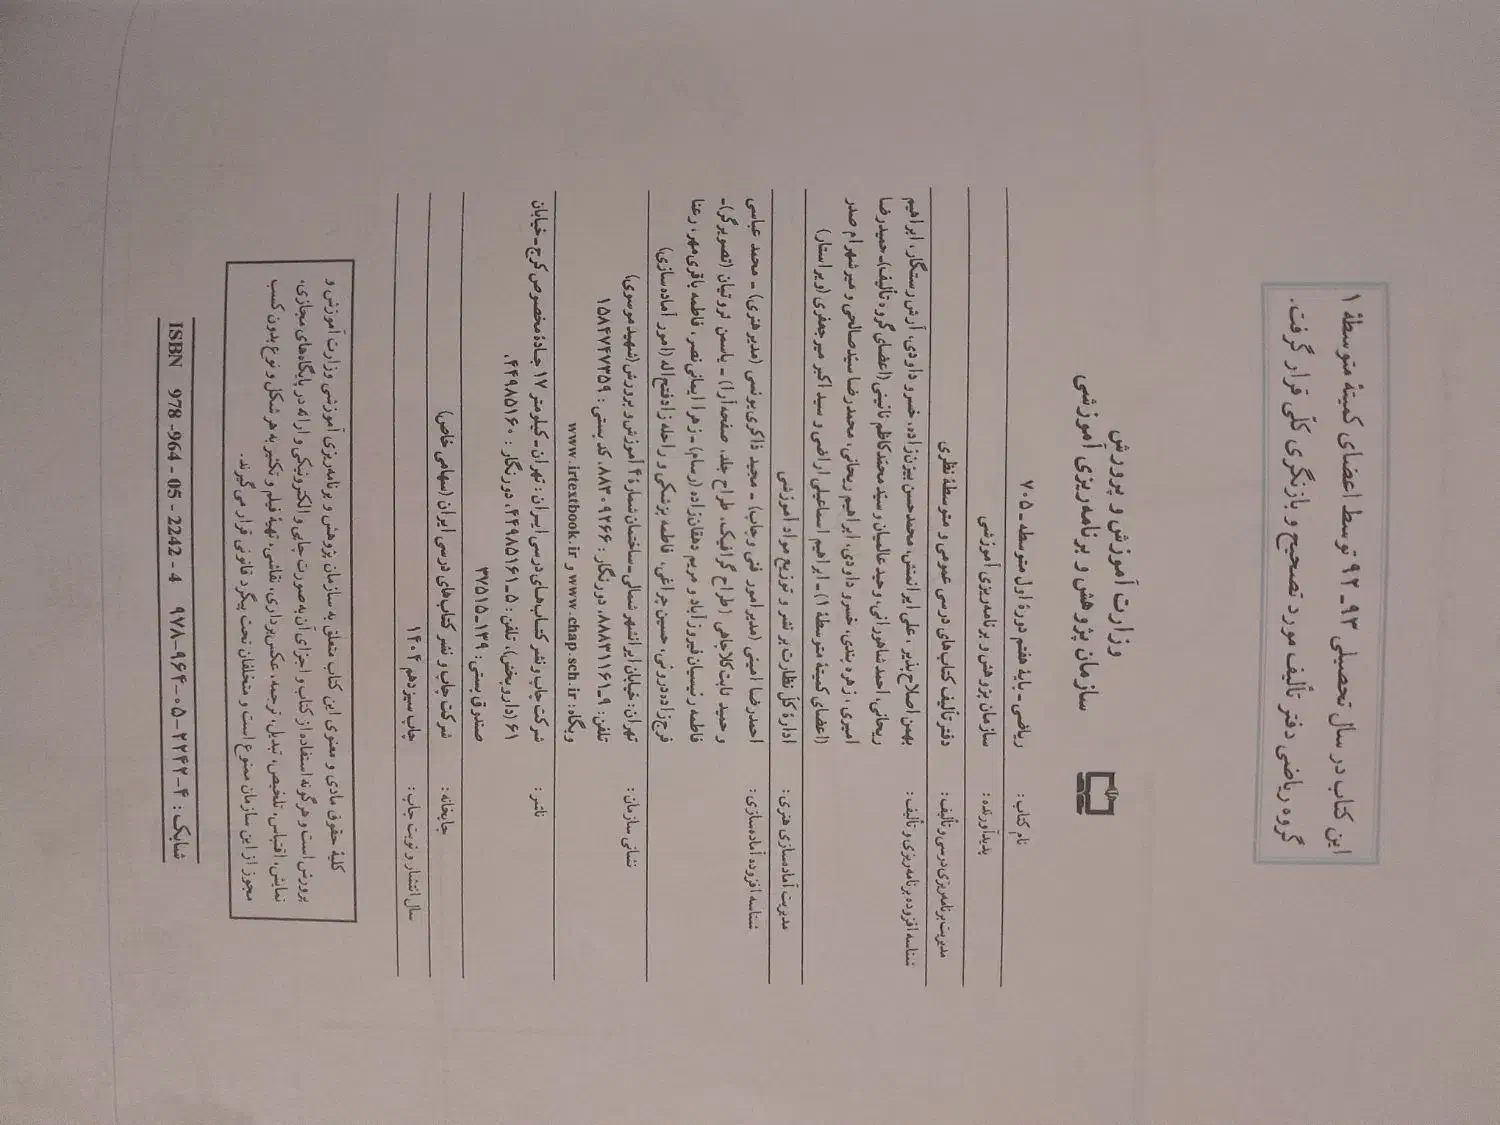 این کتاب در سال تحصیلی ۹۳ـ۹۲ توسط اعضای کمیتهٔ متوسطهٔ ۱
گروه ریاضی دفتر تألیف مورد تصحیح و بازنگری کلّی قرار گرفت.
وزارت آموزش و پرورش
سازمان پژوهش و برنامه‌ریزی آموزشی
نام کتاب : ریاضی ـ پایهٔ هفتم دورهٔ اول متوسطه ـ ۷۰۵
پدیدآورنده : سازمان پژوهش و برنامه‌ریزی آموزشی
مدیریت برنامه‌ریزی درسی و تألیف : دفتر تألیف کتاب‌های درسی عمومی و متوسطهٔ نظری
شناسه افزوده برنامه‌ریزی و تألیف : بهمن اصلاح‌پذیر، علی ایرانمنش، محمدحسن بیژن‌زاده، خسرو داودی، آرش رستگار، ابراهیم
ریحانی، احمد شاهورانی، وحید عالمیان و سیّد محمدکاظم نائینی (اعضای گروه تألیف) ـ حمیدرضا
امیری، زهره پندی، خسرو داودی، ابراهیم ریحانی، محمدرضا سیّدصالحی و میرشهرام صدر
(اعضای کمیتهٔ متوسطهٔ ۱) ـ ابراهیم اسماعیلی اراضی و سید اکبر میرجعفری (ویراستار)
مدیریت آماده‌سازی هنری : ادارهٔ کلّ نظارت بر نشر و توزیع مواد آموزشی
شناسه افزوده آماده‌سازی : احمدرضا امینی (مدیر امور فنی و چاپ) ـ مجید ذاکری یونسی (مدیر هنری) ـ محمد عباسی
و حمید ثابت‌کلاچاهی (طراح گرافیک، طراح جلد، صفحه‌آرا) ـ یاسمن ثروتیان (تصویرگر) ـ
فاطمه رئیسیان فیروزآباد و مریم دهقان‌زاده (رسام) ـ زهرا ایمانی نصر، فاطمه باقری‌مهر، رعنا
فرج‌زاده دروئی، حسین چراغی، فاطمه پزشکی و راحله زادفتح‌اله (امور آماده‌سازی)
نشانی سازمان : تهران: خیابان ایرانشهر شمالی ـ ساختمان شمارهٔ ۴ آموزش و پرورش (شهید موسوی)
تلفن: ۹ـ۸۸۸۳۱۱۶۱، دورنگار : ۸۸۳۰۹۲۶۶، کد پستی : ۱۵۸۴۷۴۷۳۵۹
وبگاه: www.chap.sch.ir و www.irtextbook.ir
ناشر : شرکت چاپ و نشر کتاب‌های درسی ایران : تهران ـ کیلومتر ۱۷ جادهٔ مخصوص کرج ـ خیابان
۶۱ (داروپخش)، تلفن: ۵ـ۴۴۹۸۵۱۶۱، دورنگار : ۴۴۹۸۵۱۶۰،
صندوق پستی: ۱۳۹ـ۳۷۵۱۵
چاپخانه : شرکت چاپ و نشر کتاب‌های درسی ایران (سهامی خاص)
سال انتشار و نوبت چاپ : چاپ سیزدهم ۱۴۰۴
کلیهٔ حقوق مادی و معنوی این کتاب متعلق به سازمان پژوهش و برنامه‌ریزی آموزشی وزارت آموزش و
پرورش است و هرگونه استفاده از کتاب و اجزای آن به‌صورت چاپی و الکترونیکی و ارائه در پایگاه‌های مجازی،
نمایش، اقتباس، تلخیص، تبدیل، ترجمه، عکس‌برداری، نقاشی، تهیهٔ فیلم و تکثیر به هر شکل و نوع بدون کسب
مجوز از این سازمان ممنوع است و متخلفان تحت پیگرد قانونی قرار می‌گیرند.
شابک : ۴-۲۲۴۲-۰۵-۹۶۴-۹۷۸ ISBN 978 -964 - 05 - 2242 - 4